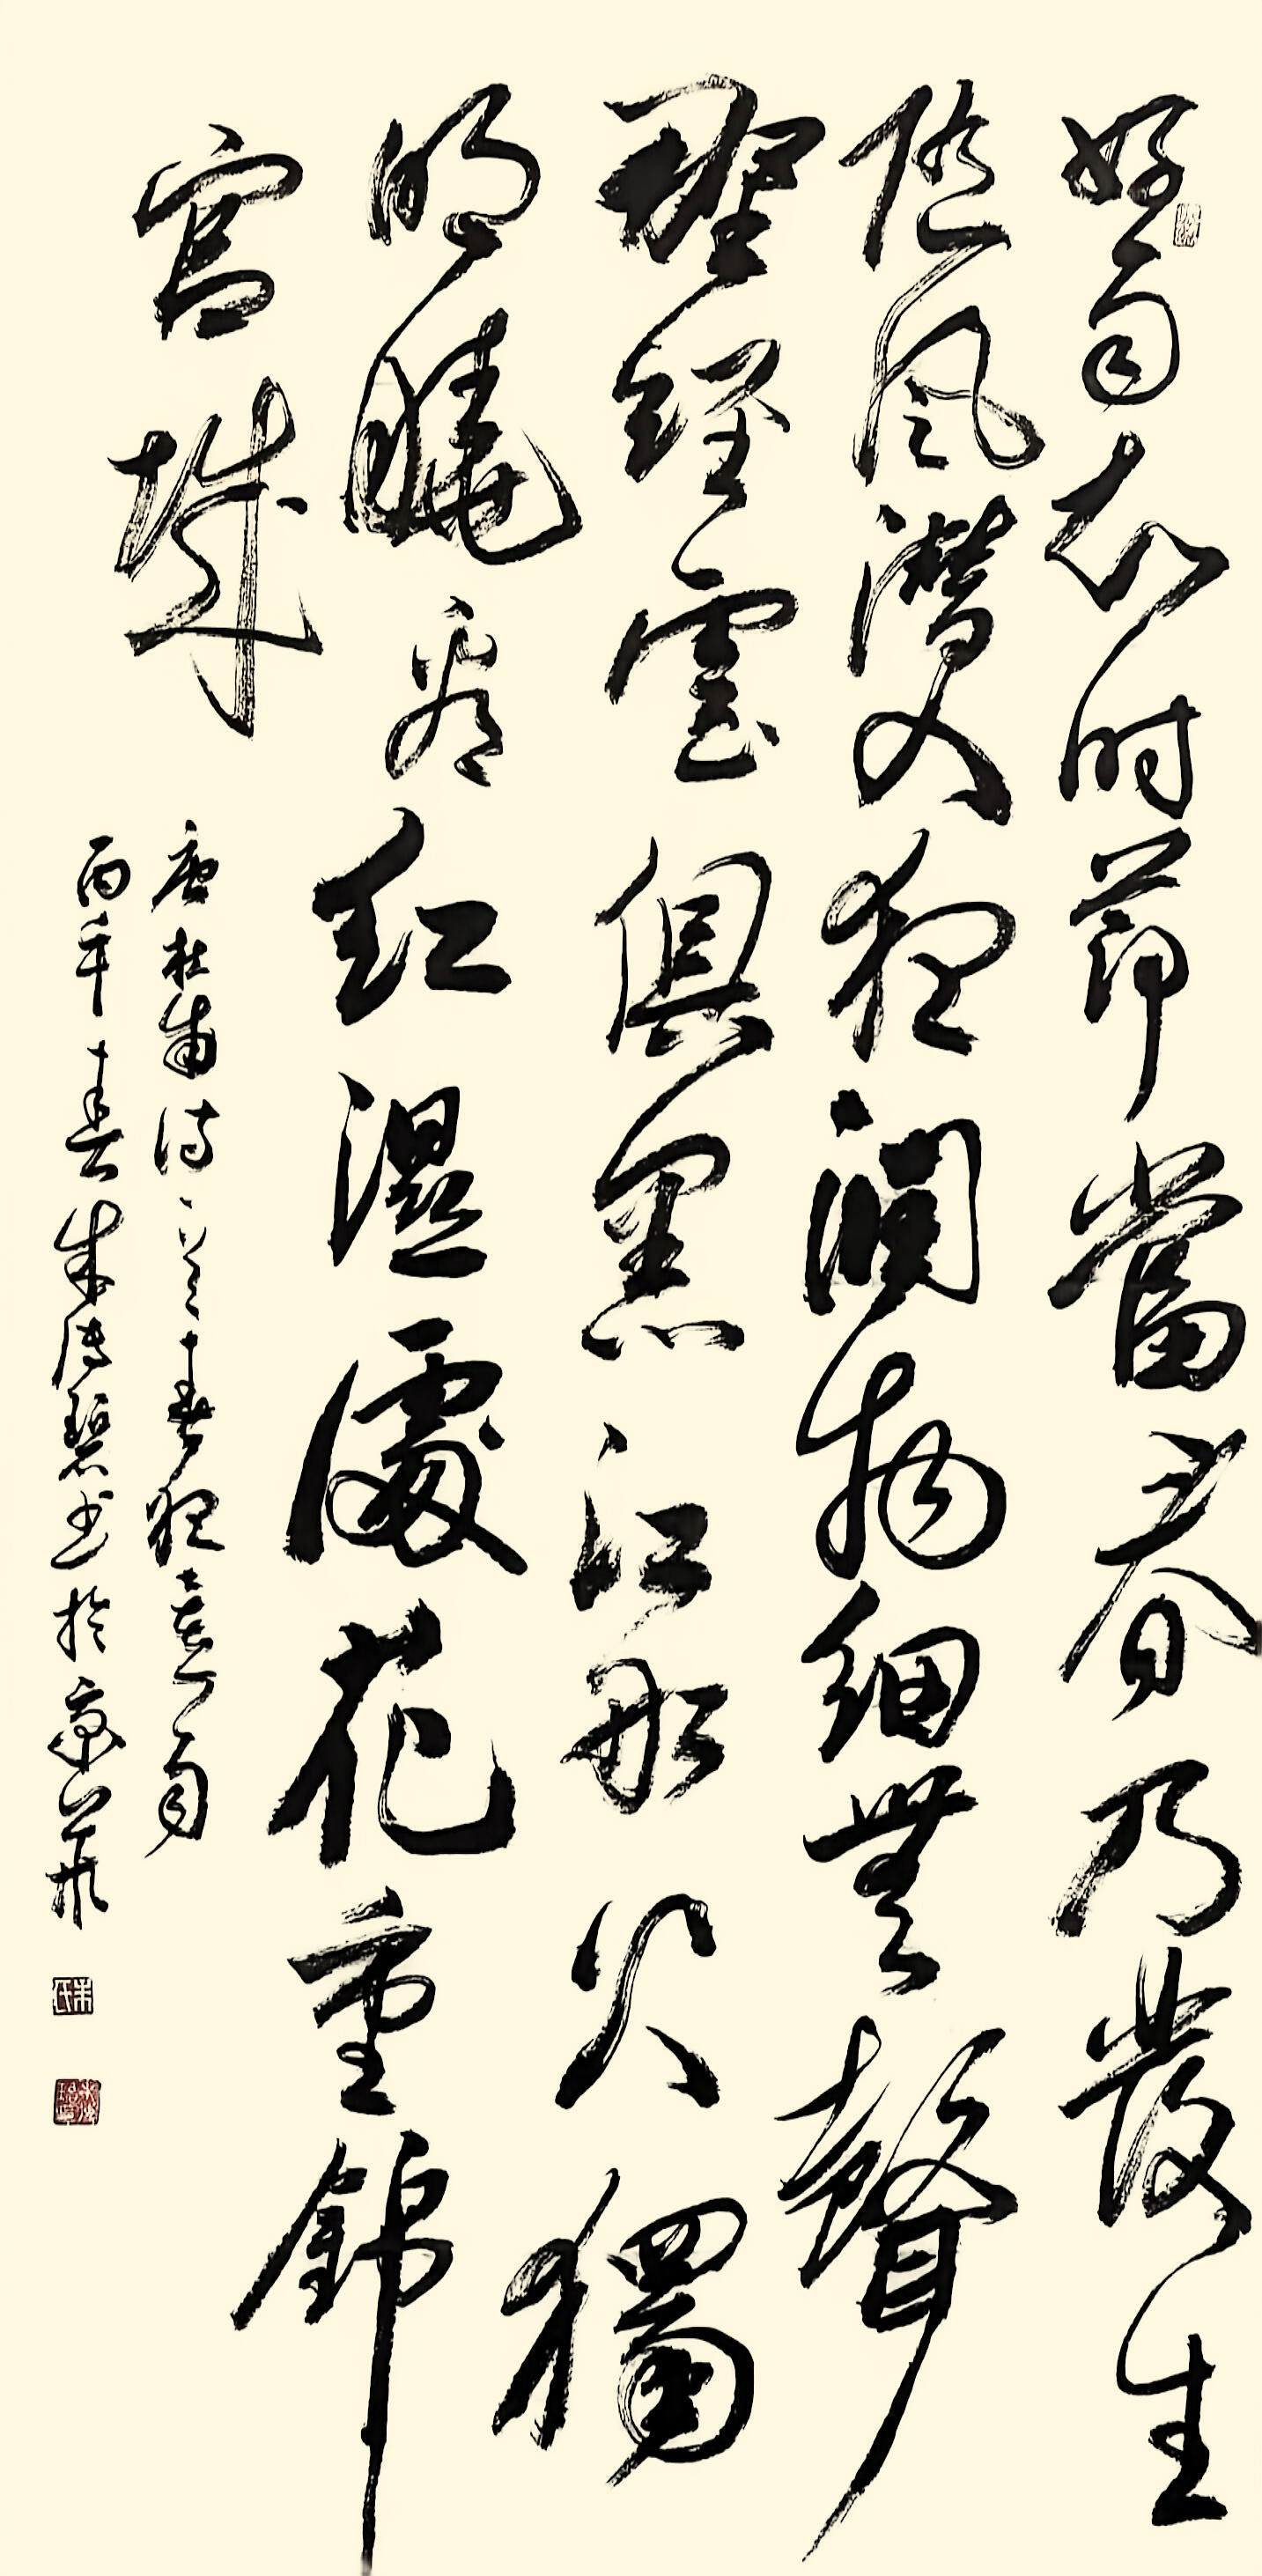 好雨知时節當春乃發生
隨風潛入夜潤物細無聲
野經雲俱黑江船火獨
明曉看紅濕處花花重錦
官城
唐杜甫詩一首春夜喜雨
丙午春朱傳碧书於京華
朱氏